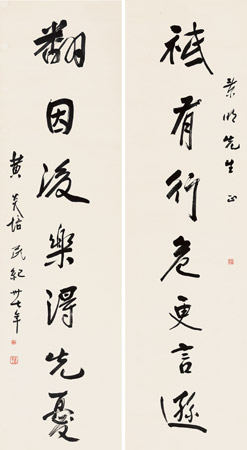 明先生正
祇有行危更言遜
翻因後樂得先憂
黄炎培民紀卅七年